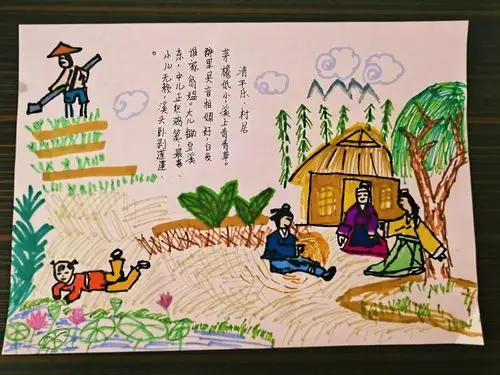 清平乐 村居
茅檐低小,溪上青青草。
醉里吴音相媚好,白发
谁家翁媪。大儿锄豆溪
东,中儿正织鸡笼;最喜
小儿无赖,溪头卧剥莲蓬
。